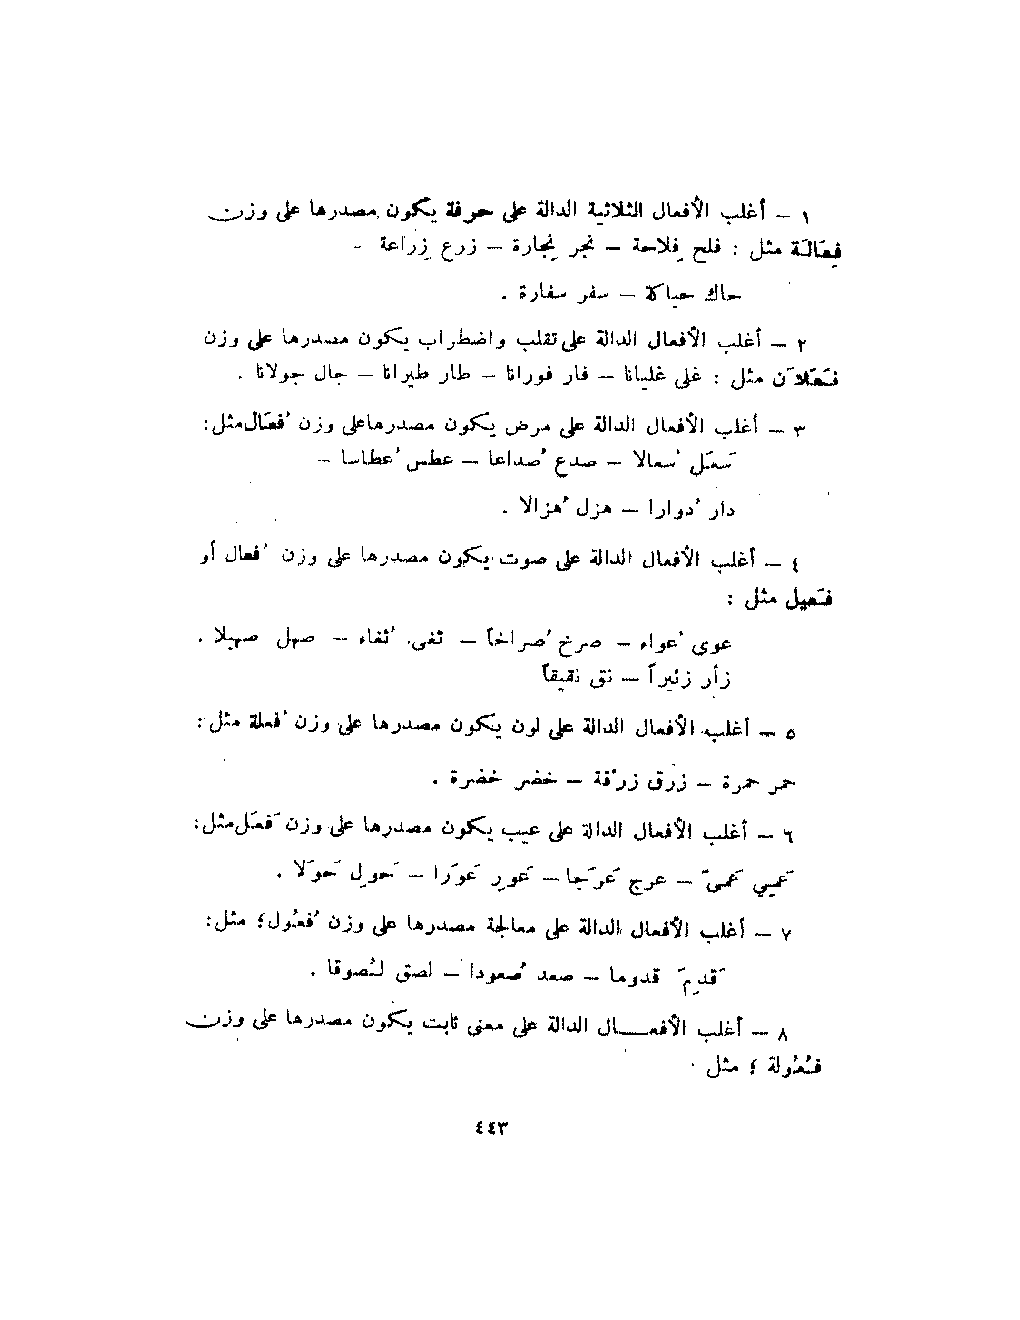 ١ – أغلب الأفعال الثلاثية الدالة على حرفة يكون مصدرها على وزن
فِعَالَة مثل : فلح فِلاحة – نجر نِجارة – زرع زِراعة –
حاك حياكة – سفر سفارة .
٢ – أغلب الأفعال الدالة على تقلب واضطراب يكون مصدرها على وزن
فَعَلاَن مثل : غلى غليانا – فار فورانا – طار طيرانا – جال جولانا .
٣ – أغلب الأفعال الدالة على مرض يكون مصدرها على وزن فُعَال مثل :
سَعَل سُعالا – صدع صُداعا – عطس عُطاسا –
دار دُوارا – هزل هُزالا .
٤ – أغلب الأفعال الدالة على صوت يكون مصدرها على وزن فُعال أو
فَعيل مثل :
عوى عُواء – صرخ صُراخاً – ثغى ثُغاء – صهل صهيلا .
زأر زئيراً – نق نقيقاً
٥ – أغلب الأفعال الدالة على لون يكون مصدرها على وزن فُعلة مثل :
حمر حمرة – زرق زرْقة – خضر خضرة .
٦ – أغلب الأفعال الدالة على عيب يكون مصدرها على وزن فَعَل مثل :
عَمِي عَمىً – عرج عَرَجا – عَوِر عَوَرا – حَوِل حَوَلا .
٧ – أغلب الأفعال الدالة على معالجة مصدرها على وزن فُعُول؛ مثل :
قَدِمَ قدوما – صعد صُعودا – لصق لُصوقا .
٨ – أغلب الأفعـــال الدالة على معنى ثابت يكون مصدرها على وزن
فُعُولة ؛ مثل .
٤٤٣